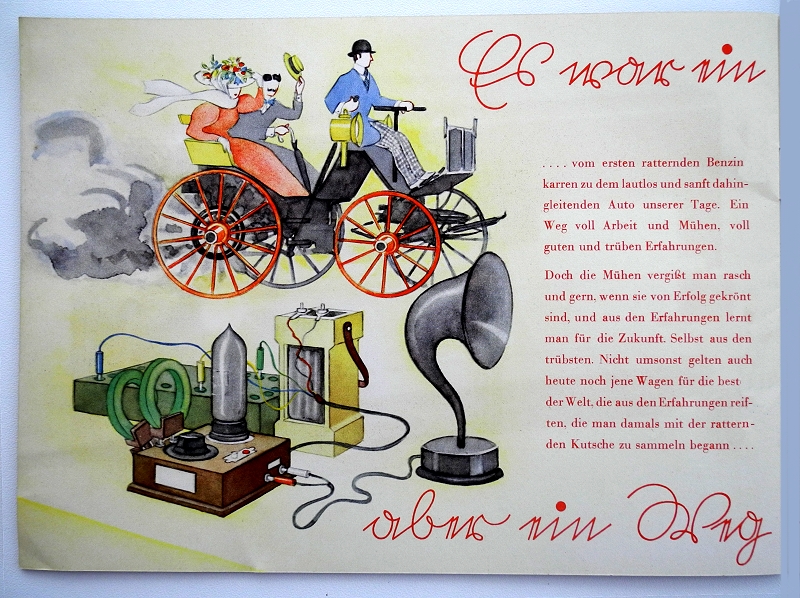 Es war ein
.... vom ersten ratternden Benzin
karren zu dem lautlos und sanft dahin-
gleitenden Auto unserer Tage. Ein
Weg voll Arbeit und Mühen, voll
guten und trüben Erfahrungen.
Doch die Mühen vergißt man rasch
und gern, wenn sie von Erfolg gekrönt
sind, und aus den Erfahrungen lernt
man für die Zukunft. Selbst aus den
trübsten. Nicht umsonst gelten auch
heute noch jene Wagen für die best
der Welt, die aus den Erfahrungen reif-
ten, die man damals mit der rattern-
den Kutsche zu sammeln begann ....
aber ein Weg